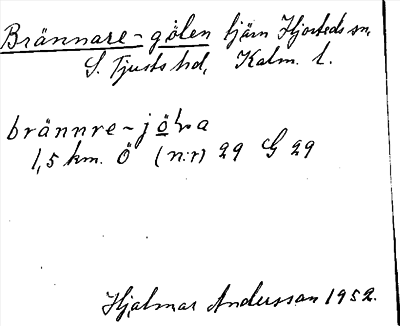 Brännare-gölen tjärn Hjorteds sn,
S. Tjusts hd, Kalm. l.
brännre-
1,5 km. Ö (n:r) 29 G 29
Hjalmar Andersson 1952.